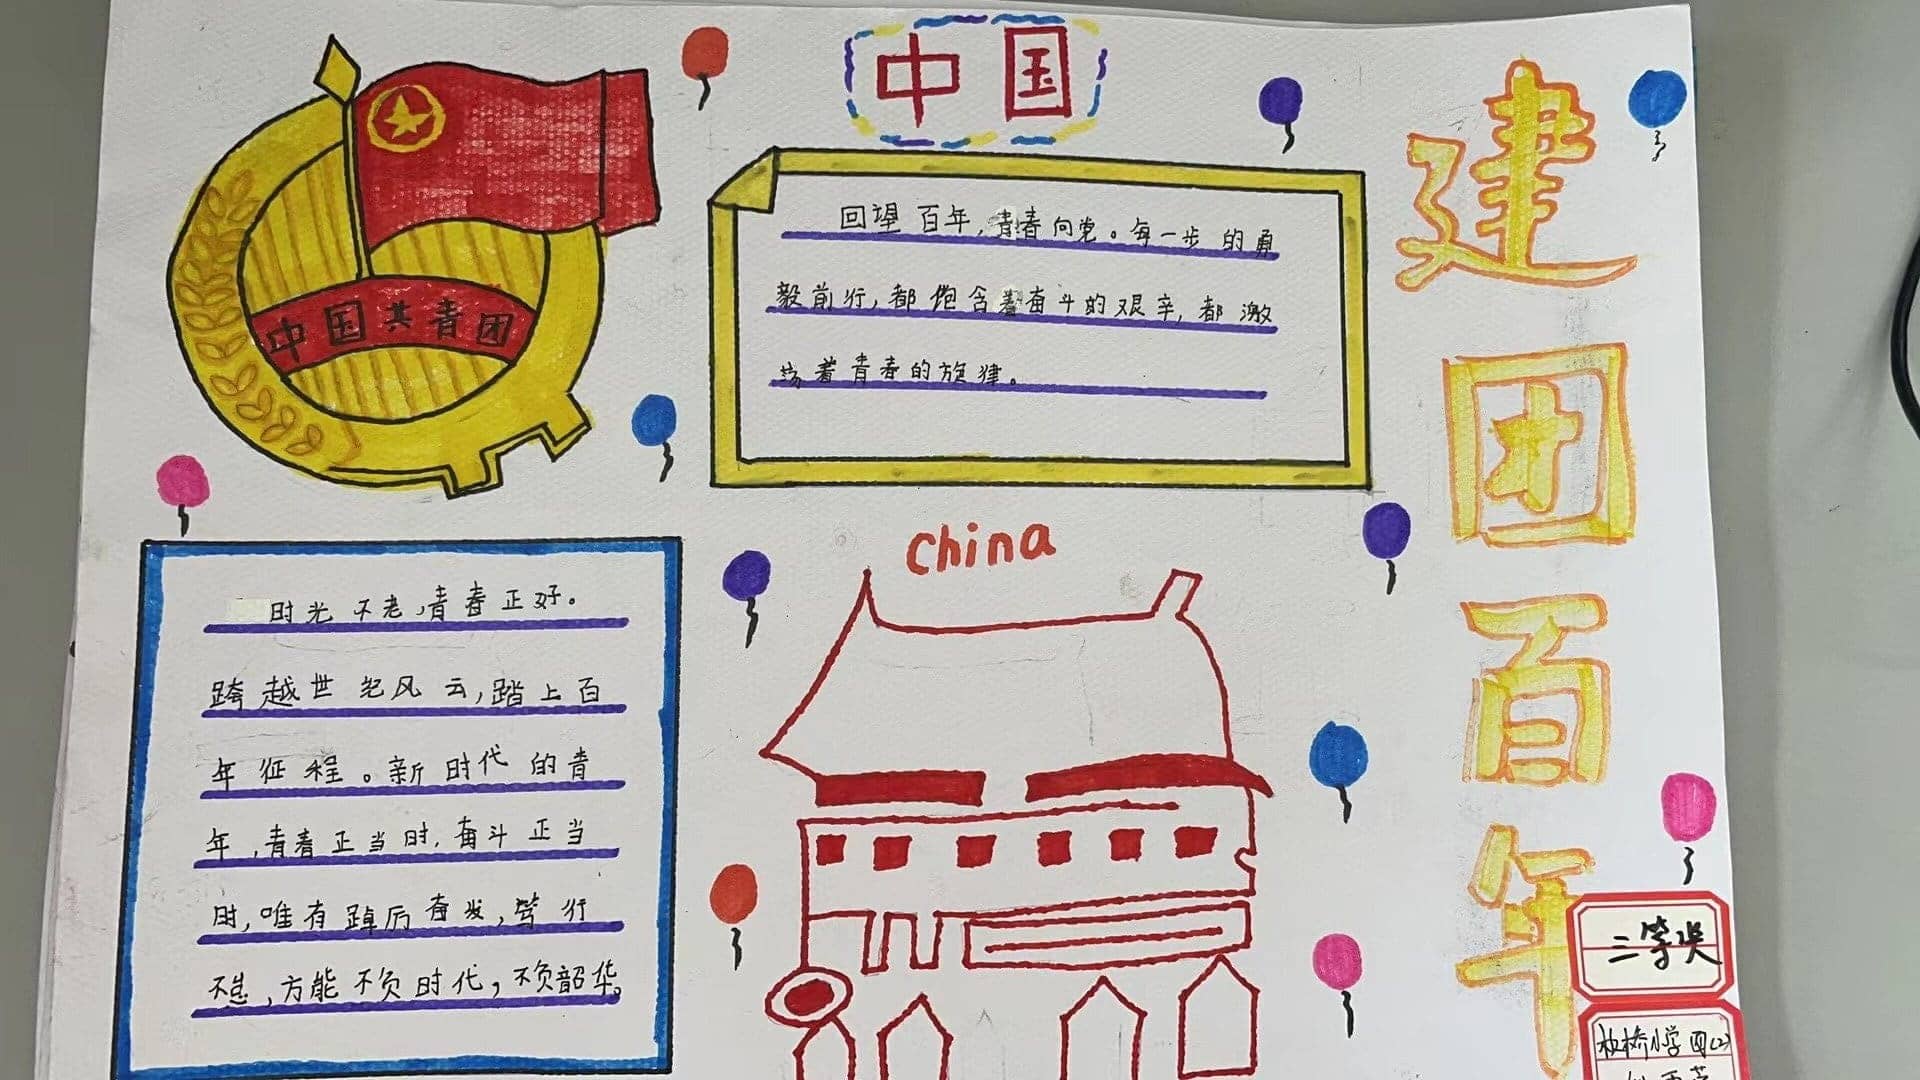 中国
建团百年
中国共青团
回望百年,青春向党。每一步的勇
毅前行,都饱含着奋斗的艰辛,都激
荡着青春的旋律。
china
时光不老,青春正好。
跨越世纪风云,踏上百
年征程。新时代的青
年,青春正当时,奋斗正当
时,唯有踔厉奋发,笃行
不怠,方能不负时代,不负韶华。
三等奖
板桥小学四(2)